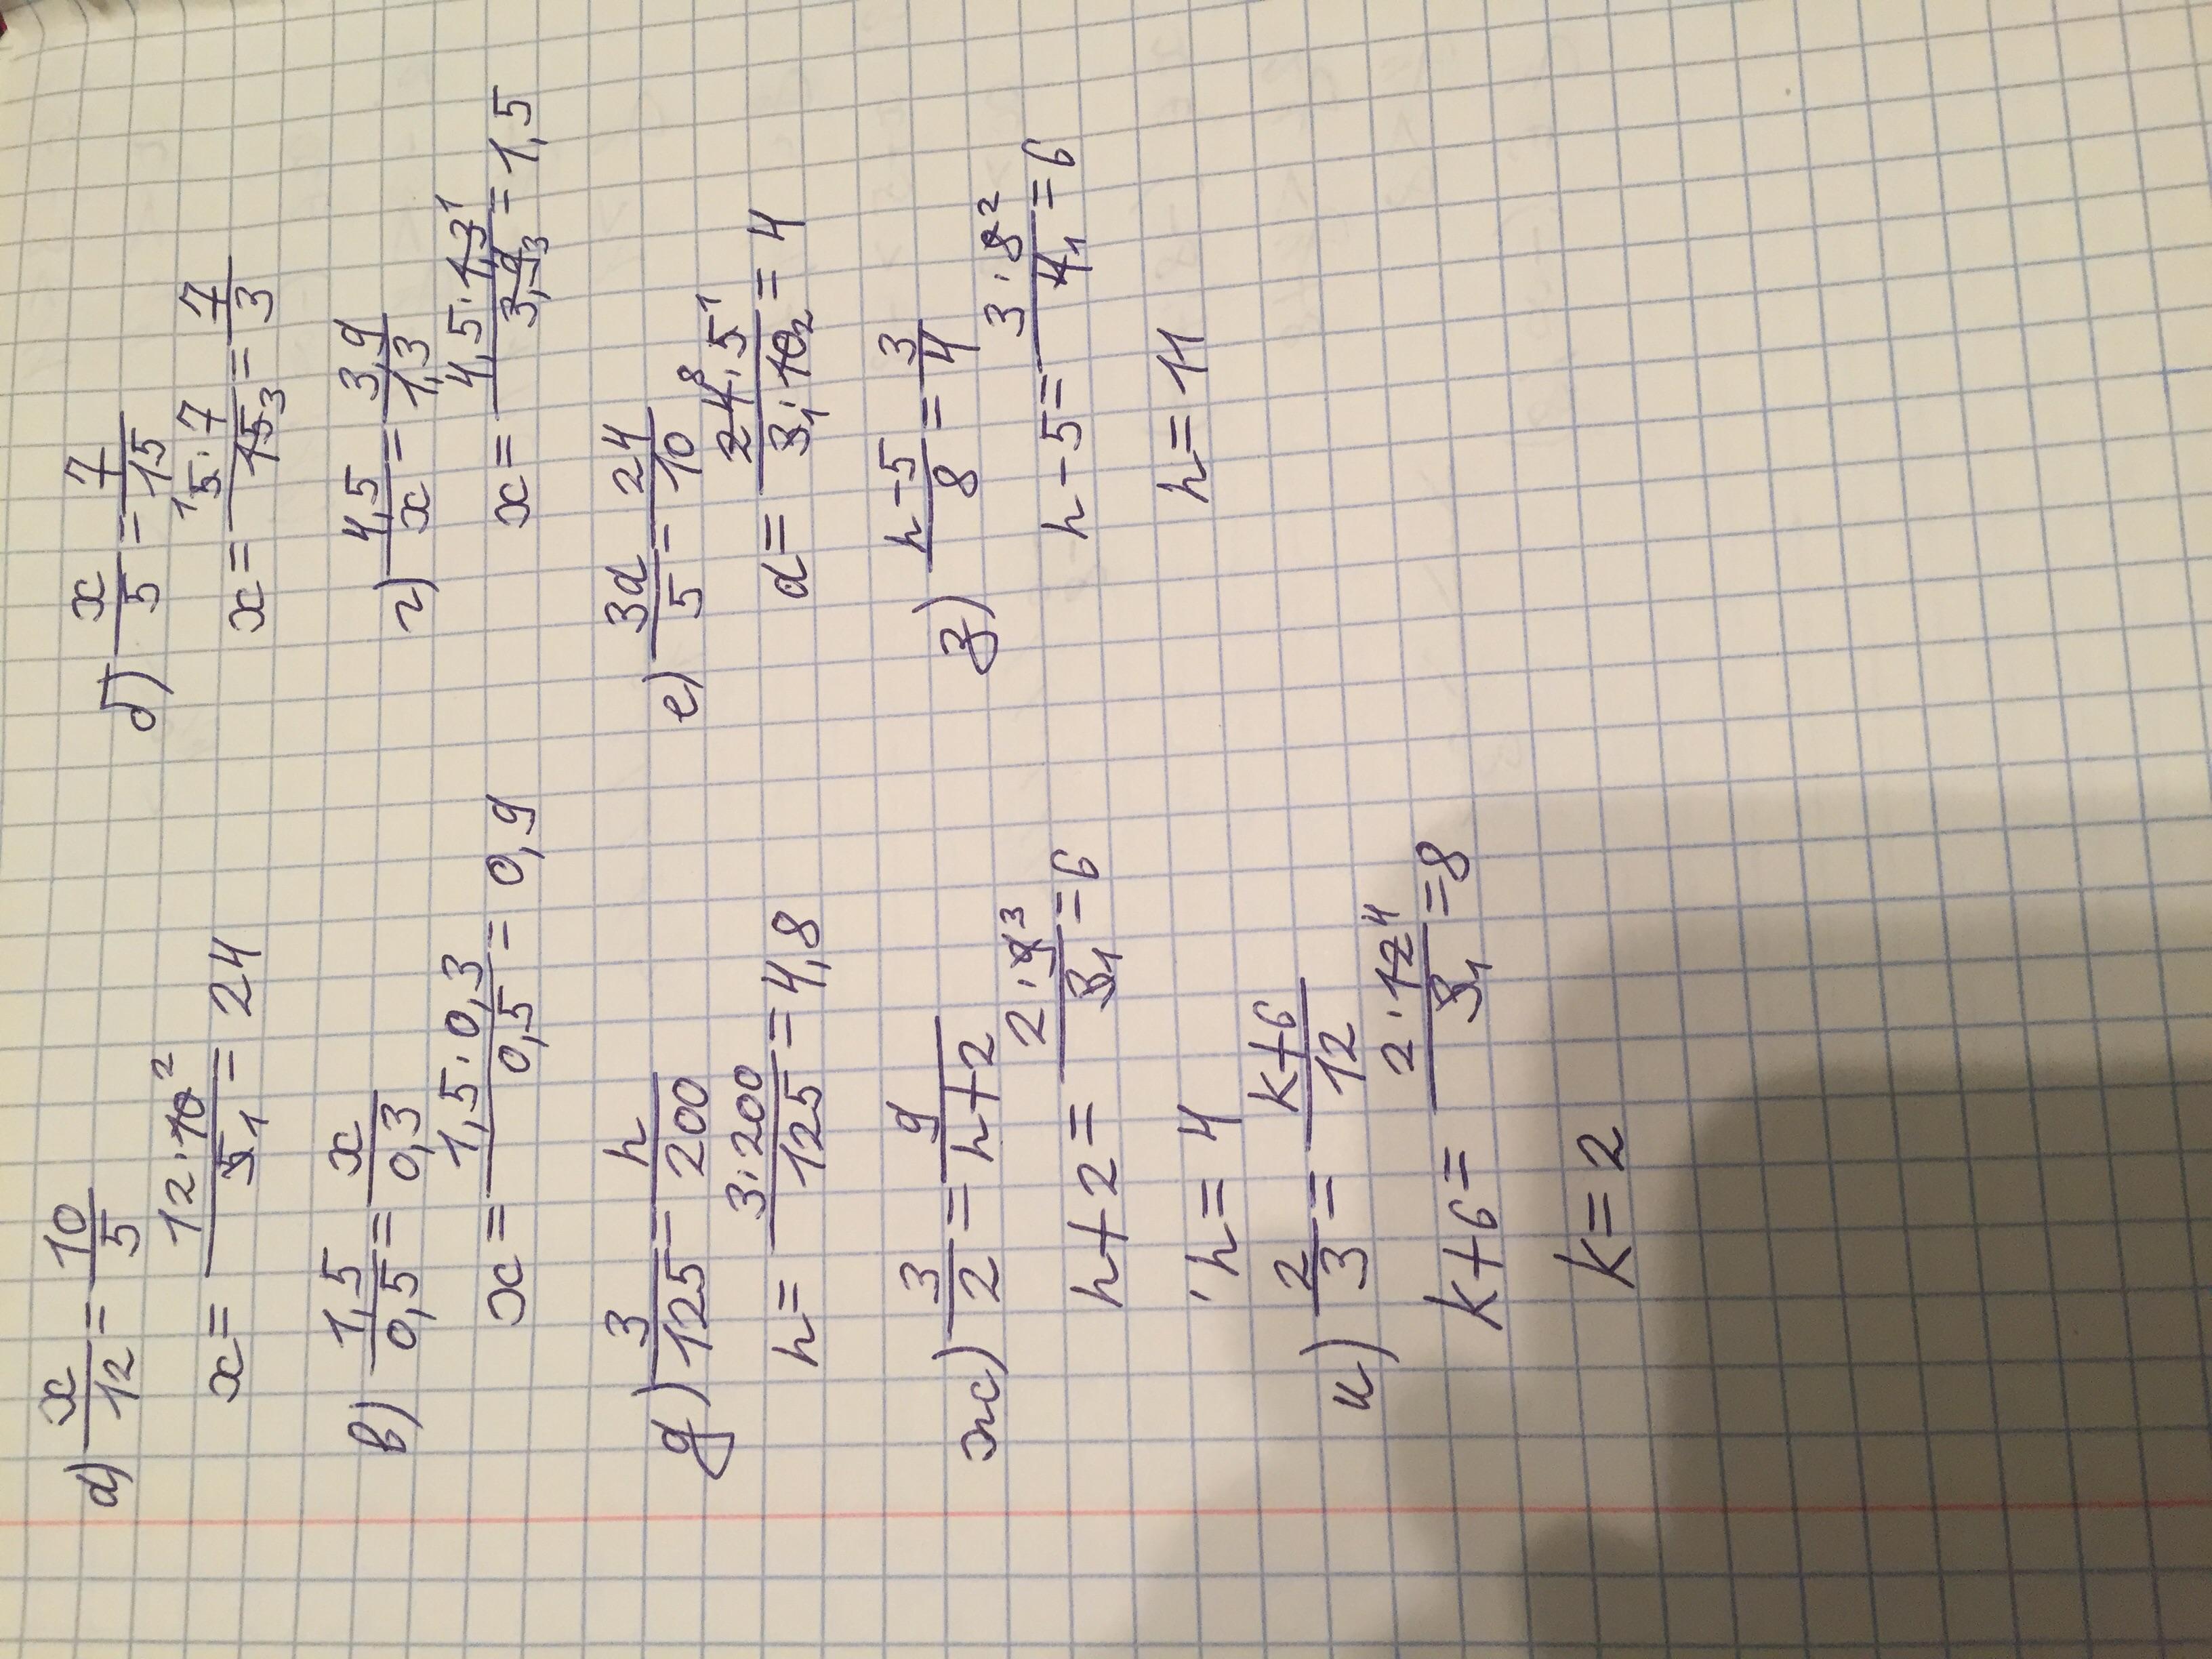 а) x/12 = 10/5
x = 12·10²/5₁ = 24
б) x/5 = 7/15
x = ¹5·7/15₃ = 7/3
в) 1,5/0,5 = x/0,3
x = 1,5·0,3/0,5 = 0,9
г) 4,5/x = 3,9/1,3
x = 4,5·1,3¹/3,9₃ = 1,5
д) 3/125 = h/200
h = 3·200/125 = 4,8
е) 3d/5 = 24/10
d = 24⁸·5¹/3₁·10₂ = 4
ж) 3/2 = 9/h+2
h+2 = 2·9³/3₁ = 6
h = 4
з) h-5/8 = 3/4
h-5 = 3·8²/4₁ = 6
h = 11
и) 2/3 = k+6/12
k+6 = 2·12⁴/3₁ = 8
k = 2